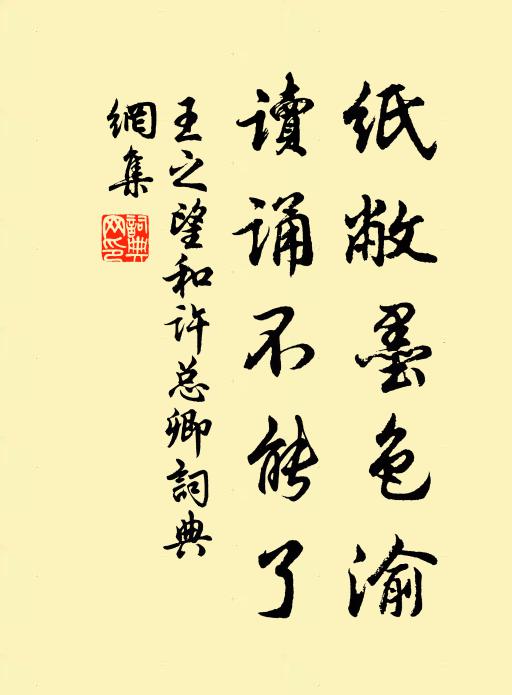 紙敝墨色渝
讀誦不能了
王之望和许总卿詞典
網集
詞典网印